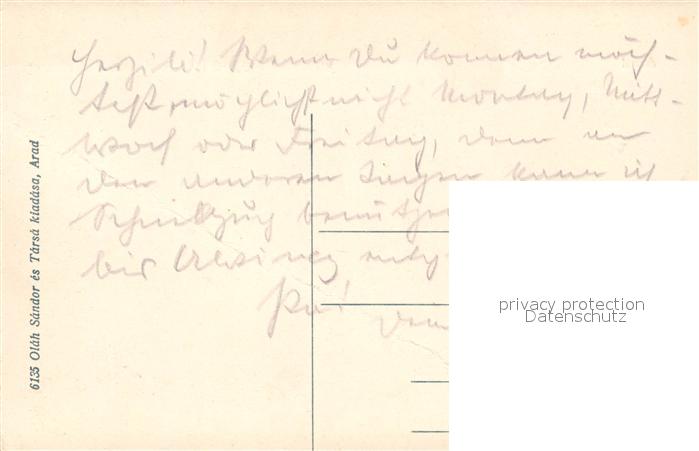 Herzili! Wenn Du kommen möch-
test, möglichst nicht Montag, Mitt-
woch oder Freitag, denn an
den anderen Tagen kann ich
Schnellzug benütze
bis
Pa!
6135 Oláh Sándor és Társá kiadása, Arad
privacy protection
Datenschutz